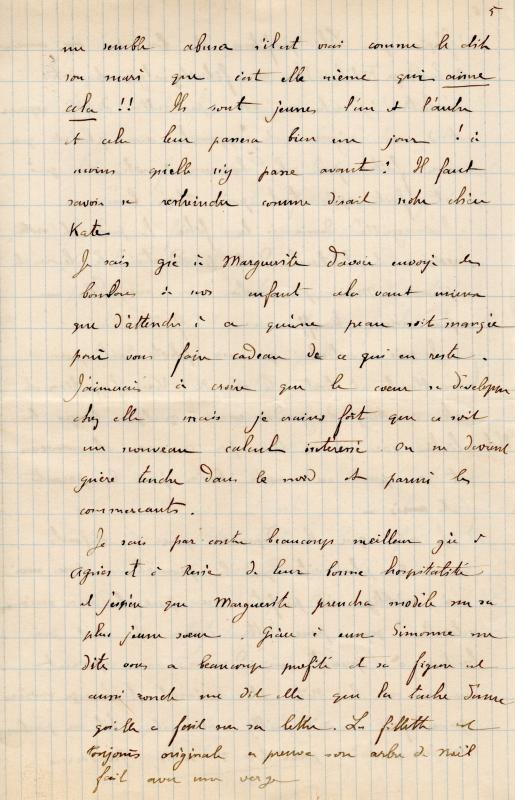 5
me semble abuser s'il est vrai comme le dit
son mari que c'est elle même qui aime
cela !! Ils sont jeunes l'un et l'autre
et cela leur passera bien un jour ! à
moins qu'elle n'y passe avant ! Il faut
savoir se restreindre comme disait notre chère
Kate
Je sais gré à Marguerite d'avoir envoyé des
bonbons à nos enfant cela vaut mieux
que d'attendre à ce qu'une peau soit mangée
pour vous faire cadeau de ce qui en reste.
J'aimerais à croire que le coeur se développe
chez elle mais je crains fort que ce soit
un nouveau calcul intéressé. On ne devient
guère tendre dans le nord et parmi les
commercants.
Je sais par contre beaucoup meilleur gré à
Agnès et à de leur bonne hospitalité
et j'espère que Marguerite prendra modèle sur sa
plus jeune soeur. Grâce à eux Simonne me
dites vous a beaucoup profité et sa figure est
aussi ronde me dit elle que la tache d'encre
qu'elle a fait sur sa lettre. La fillette est
toujours originale a preuve son arbre de Noël
fait avec une verge